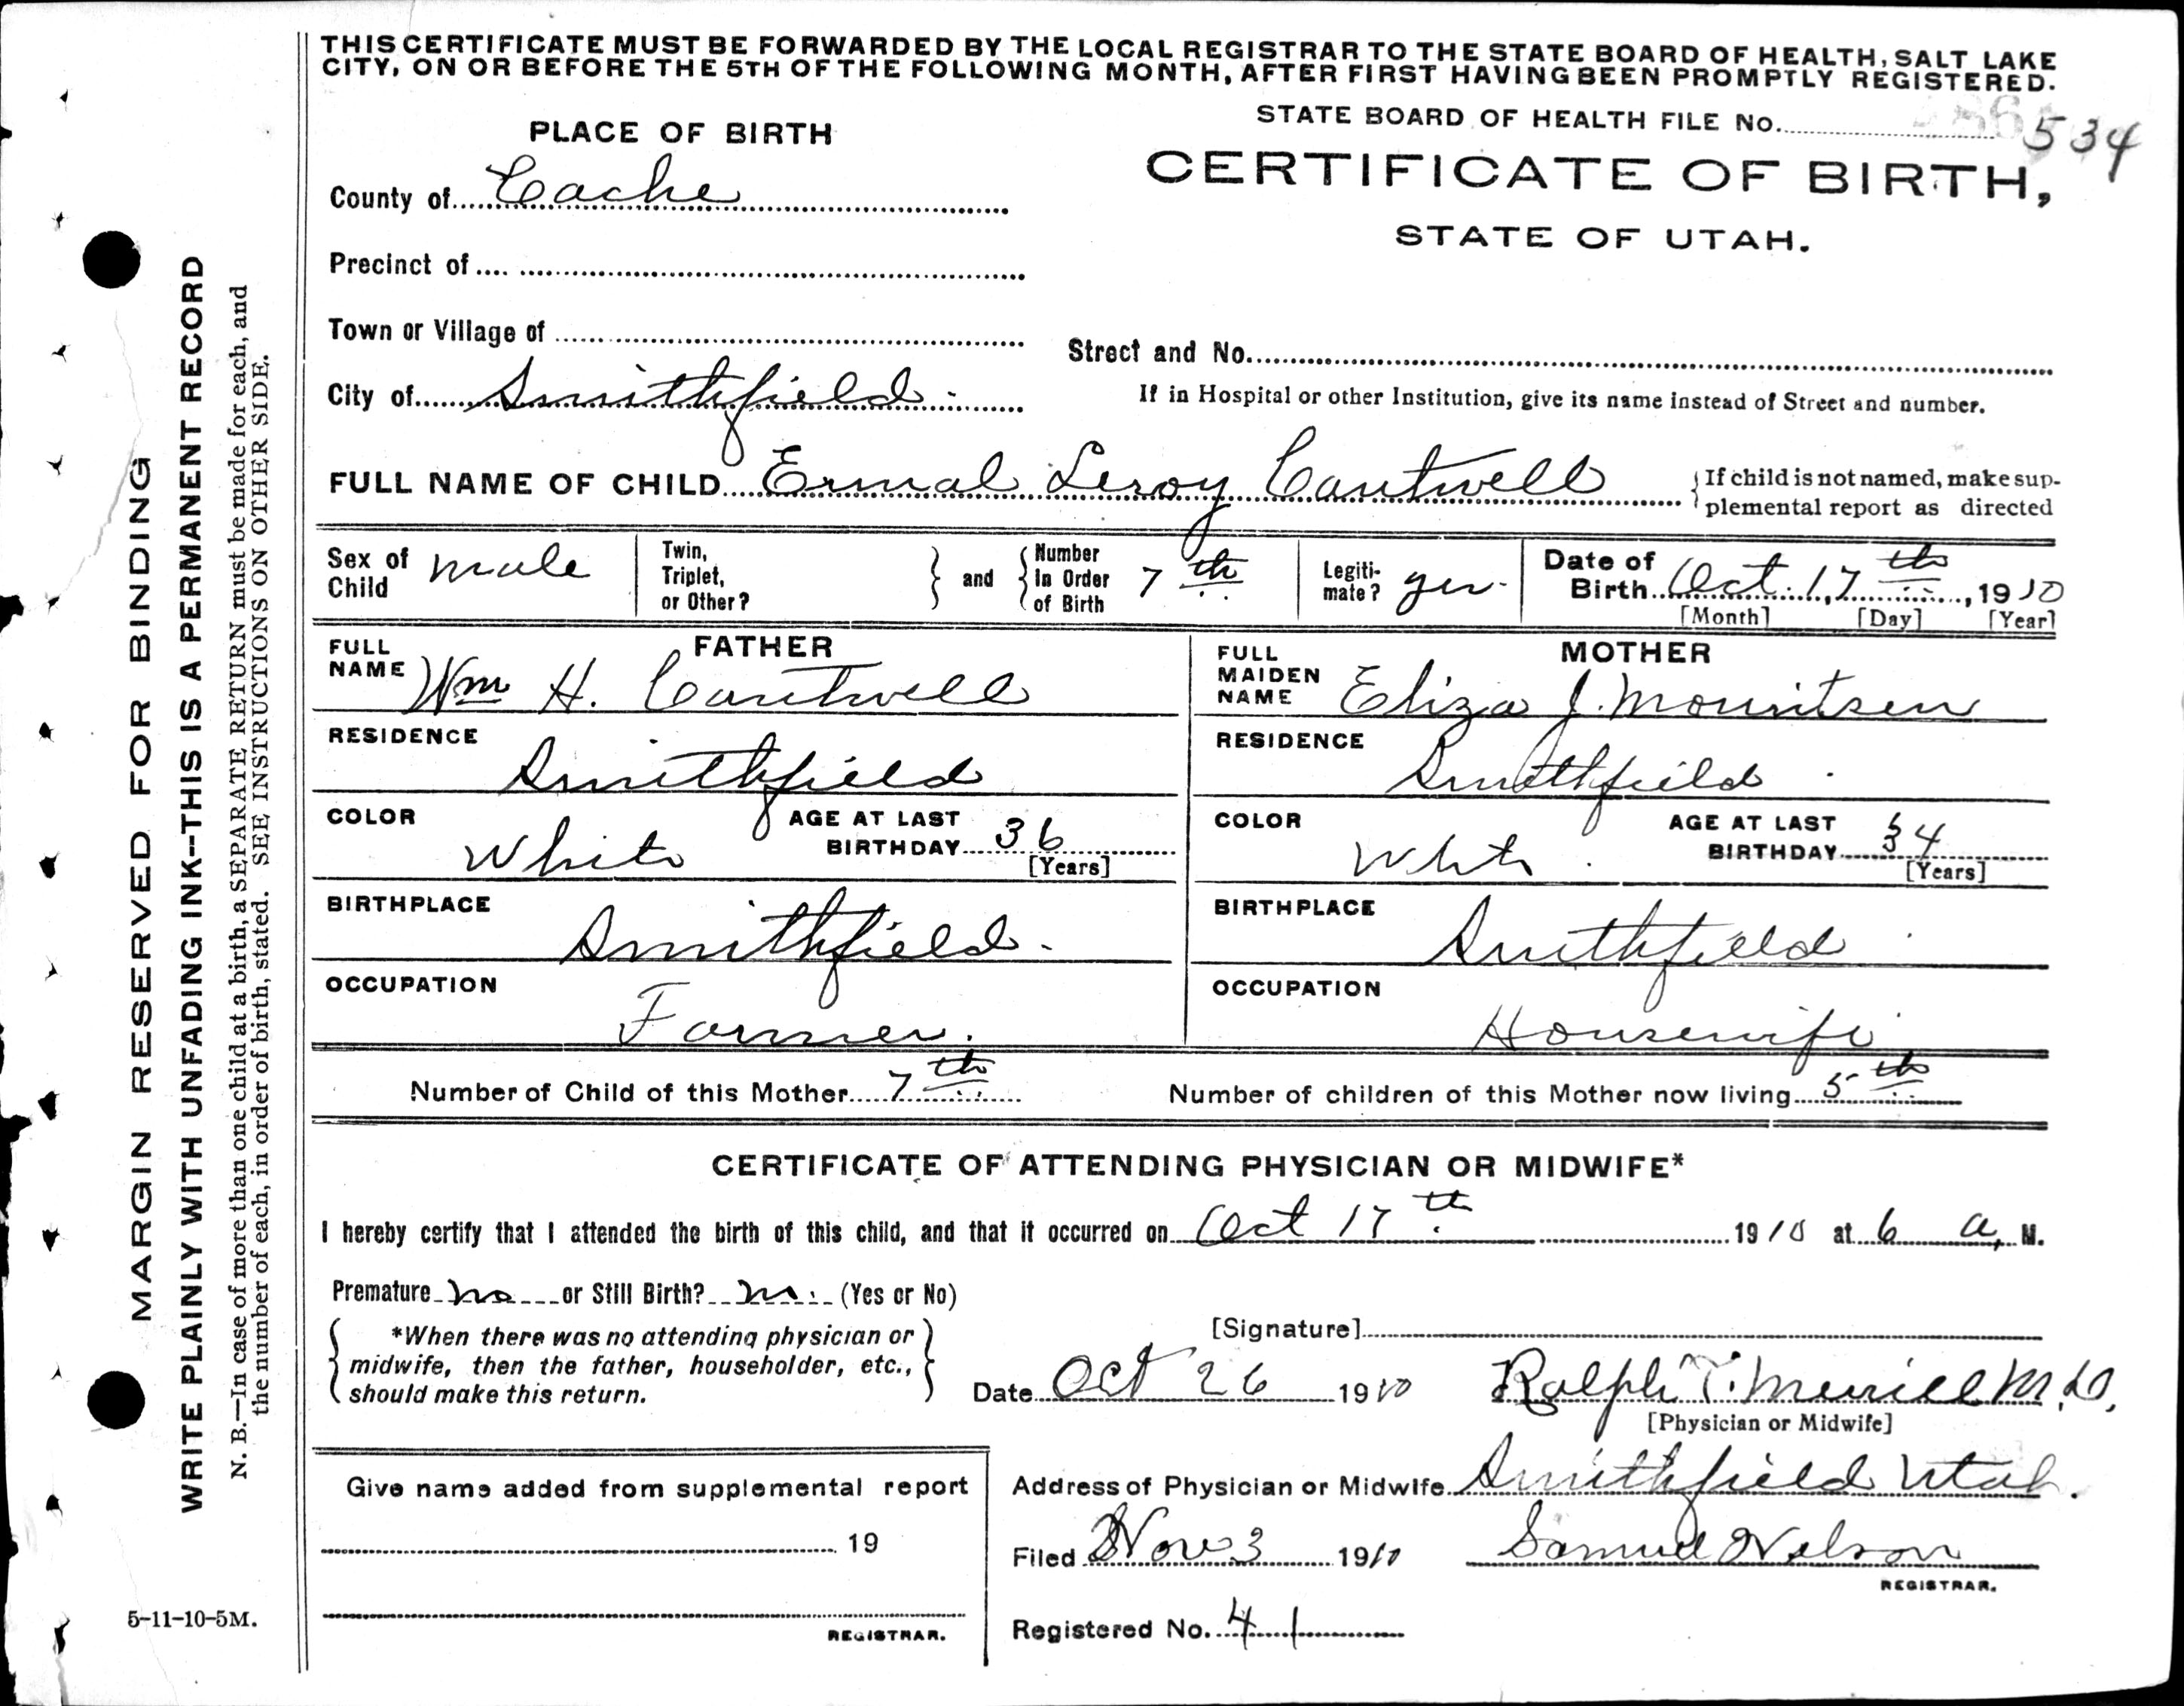 THIS CERTIFICATE MUST BE FORWARDED BY THE LOCAL REGISTRAR TO THE STATE BOARD OF HEALTH, SALT LAKE
CITY, ON OR BEFORE THE 5TH OF THE FOLLOWING MONTH, AFTER FIRST HAVING BEEN PROMPTLY REGISTERED.
STATE BOARD OF HEALTH FILE No. 534
PLACE OF BIRTH
CERTIFICATE OF BIRTH,
STATE OF UTAH.
County of Cache
Precinct of
Town or Village of
Street and No.
City of Smithfield
If in Hospital or other Institution, give its name instead of Street and number.
FULL NAME OF CHILD Ermal Leroy Cantwell
If child is not named, make sup-
plemental report as directed
Sex of Child male
Twin, Triplet, or Other?
and
Number In Order of Birth 7th
Legiti-mate? yes
Date of Birth Oct. 17th, 1910
[Month] [Day] [Year]
FATHER
FULL NAME Wm H. Cantwell
RESIDENCE
Smithfield
COLOR White
AGE AT LAST BIRTHDAY 36
[Years]
BIRTHPLACE
Smithfield
OCCUPATION
Farmer.
MOTHER
FULL MAIDEN NAME Eliza J. Mouritsen
RESIDENCE
Smithfield
COLOR White
AGE AT LAST BIRTHDAY 34
[Years]
BIRTHPLACE
Smithfield
OCCUPATION
Housewife
Number of Child of this Mother 7th
Number of children of this Mother now living 5th
CERTIFICATE OF ATTENDING PHYSICIAN OR MIDWIFE*
I hereby certify that I attended the birth of this child, and that it occurred on Oct 17th 1910 at 6 a. M.
Premature no or Still Birth? no (Yes or No)
*When there was no attending physician or
midwife, then the father, householder, etc.,
should make this return.
[Signature]
Date Oct 26 1910 Ralph T. Merrill M.D.
[Physician or Midwife]
Give name added from supplemental report
19
REGISTRAR.
Address of Physician or Midwife Smithfield Utah.
Filed Nov 3 1910 Samuel Nelson
REGISTRAR.
Registered No. 41
MARGIN RESERVED FOR BINDING
WRITE PLAINLY WITH UNFADING INK--THIS IS A PERMANENT RECORD
N. B.—In case of more than one child at a birth, a SEPARATE RETURN must be made for each, and
the number of each, in order of birth, stated. SEE INSTRUCTIONS ON OTHER SIDE.
5-11-10-5M.